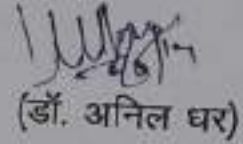 (डॉ. अनिल धर)